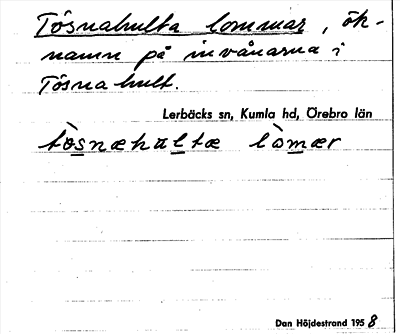 Tösnahulta lommar, ök-
namn på invånarna i
Tösnahult.
Lerbäcks sn, Kumla hd, Örebro län
tòsnæhultæ lòmær
Dan Höjdestrand 1958